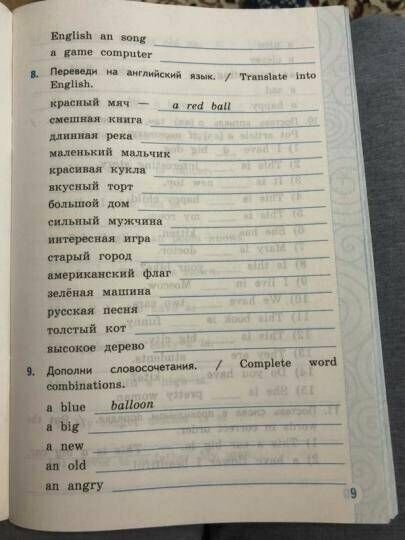 English an song
a game computer
8. Переведи на английский язык. / Translate into
English.
красный мяч — a red ball
смешная книга
длинная река
маленький мальчик
красивая кукла
вкусный торт
большой дом
сильный мужчина
интересная игра
старый город
американский флаг
зелёная машина
русская песня
толстый кот
высокое дерево
9. Дополни словосочетания. / Complete word
combinations.
a blue balloon
a big
a new
an old
an angry
9